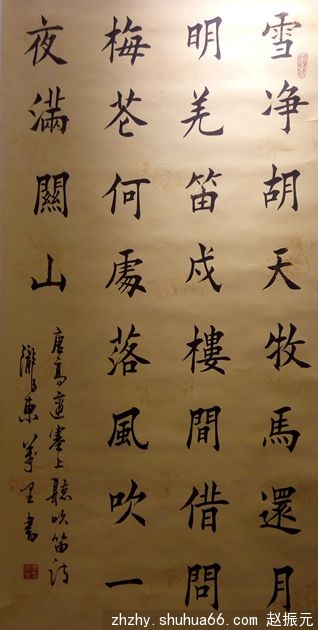 雪净胡天牧馬還月
明羌笛戍樓間借問
梅花何處落風吹一
夜滿關山
唐高適塞上聽吹笛詩
東里書
zhzhy.shuhua66.com 赵振元